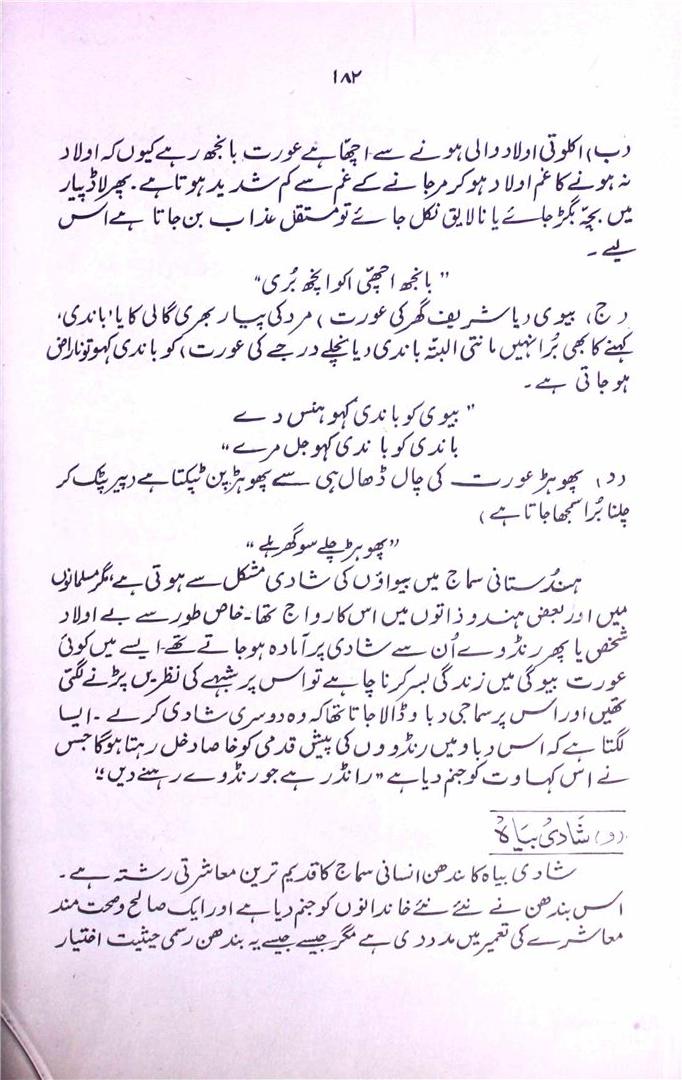 ۱۸۲
(ب) اکلوتی اولاد والی ہونے سے اچھا ہے عورت بانجھ رہے کیوں کہ اولاد
نہ ہونے کا غم اولاد ہو کر مر جانے کے غم سے کم شدید ہوتا ہے۔ پھر لاڈ پیار
میں بچہ بگڑ جائے یا نالایق نکل جائے تو مستقل عذاب بن جاتا ہے اس
لیے۔
" بانجھ اچھی اکوانجھ بُری "
(ج) بیوی (یا شریف گھر کی عورت) مرد کی پیار بھری گالی کا یا 'باندی'
کہنے کا بھی بُرا نہیں مانتی البتہ باندی (یا نچلے درجے کی عورت) کو باندی کہو تو ناراض
ہو جاتی ہے۔
" بیوی کو باندی کہو ہنس دے
باندی کو باندی کہو جل مرے "
(د) پھوہڑ عورت کی چال ڈھال ہی سے پھوہڑ پن ٹپکتا ہے (پیر پٹک کر
چلنا بُرا سمجھا جاتا ہے)
" پھوہڑ چلے سو گھر ہلے "
ہندُستانی سماج میں بیواؤں کی شادی مشکل سے ہوتی ہے، مگر مسلمانوں
میں اور بعض ہندو ذاتوں میں اس کا رواج تھا۔ خاص طور سے بے اولاد
شخص یا پھر رنڈوے اُن سے شادی پر آمادہ ہو جاتے تھے۔ ایسے میں کوئی
عورت بیوگی میں زندگی بسر کرنا چاہے تو اس پر شبہے کی نظریں پڑنے لگتی
تھیں اور اس پر سماجی دباو ڈالا جاتا تھا کہ وہ دوسری شادی کرلے۔ ایسا
لگتا ہے کہ اس دباو میں رنڈووں کی پیش قدمی کو خاصا دخل رہتا ہوگا جس
نے اس کہاوت کو جنم دیا ہے " رانڈ رہے جو رنڈوے رہنے دیں "
(و) شادی بیاہ
شادی بیاہ کا بندھن انسانی سماج کا قدیم ترین معاشرتی رشتہ ہے۔
اس بندھن نے نئے نئے خاندانوں کو جنم دیا ہے اور ایک صالح و صحت مند
معاشرے کی تعمیر میں مدد دی ہے مگر جیسے جیسے یہ بندھن رسمی حیثیت اختیار